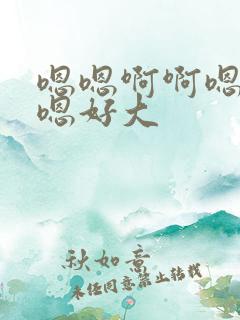 嗯嗯啊啊嗯
嗯好大
秋如意
未经同意禁止转载